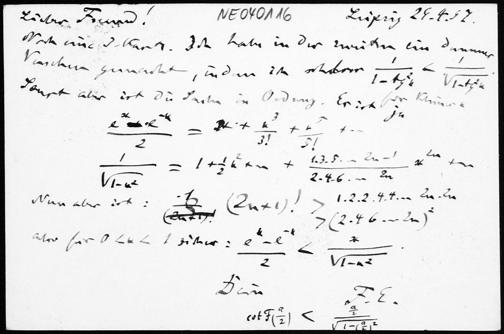 Lieber Freund! NE040A16 Leipzig 29.4.37.
Noch eine J. Karte. Ich habe in der zweiten ein dummes
Versehen gemacht, indem ich schrieb \frac{1}{1-tg^2 x} < \frac{1}{\sqrt{1-tg^2 x}}
Sonst aber ist die Sache in Ordnung. Es ist ja für kleine
\frac{e^x - e^{-x}}{2} = x + \frac{x^3}{3!} + \frac{x^5}{5!} + ...
\frac{1}{\sqrt{1-x^2}} = 1 + \frac{1}{2} x^2 + ... + \frac{1.3.5...2n-1}{2.4.6...2n} x^{2n} + ...
Nun aber ist: (2n+1)! > 1.2.2.4.4...2n.2n
> (2.4.6...2n)^2
also für 0 < x < 1 sicher: \frac{e^x - e^{-x}}{2} < \frac{x}{\sqrt{1-x^2}}.
Dein F. E.